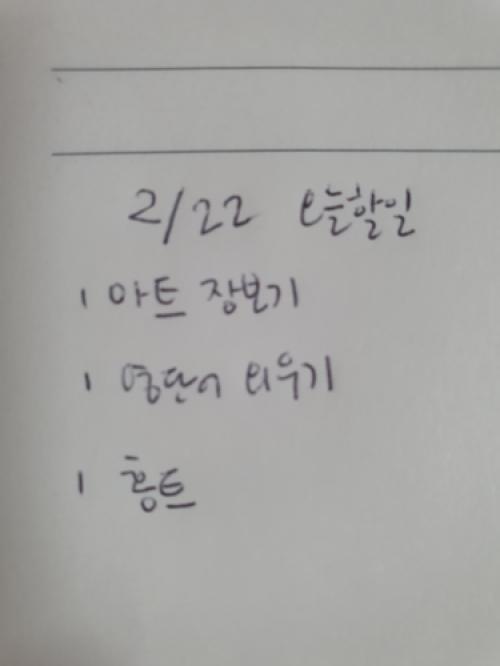 2/22 오늘할일
I 마트 장보기
I 영단어 외우기
I 홈트